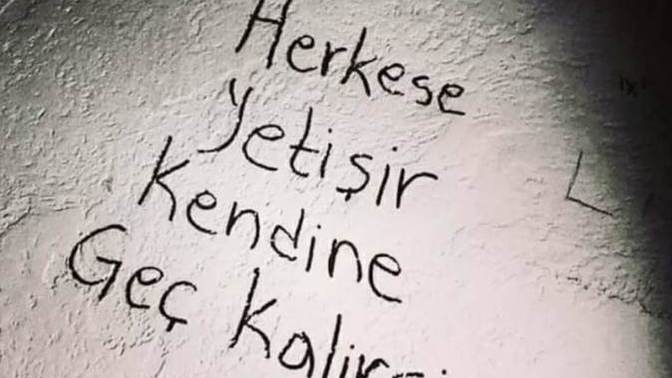 Herkese
Yetişir
Kendine
Geç